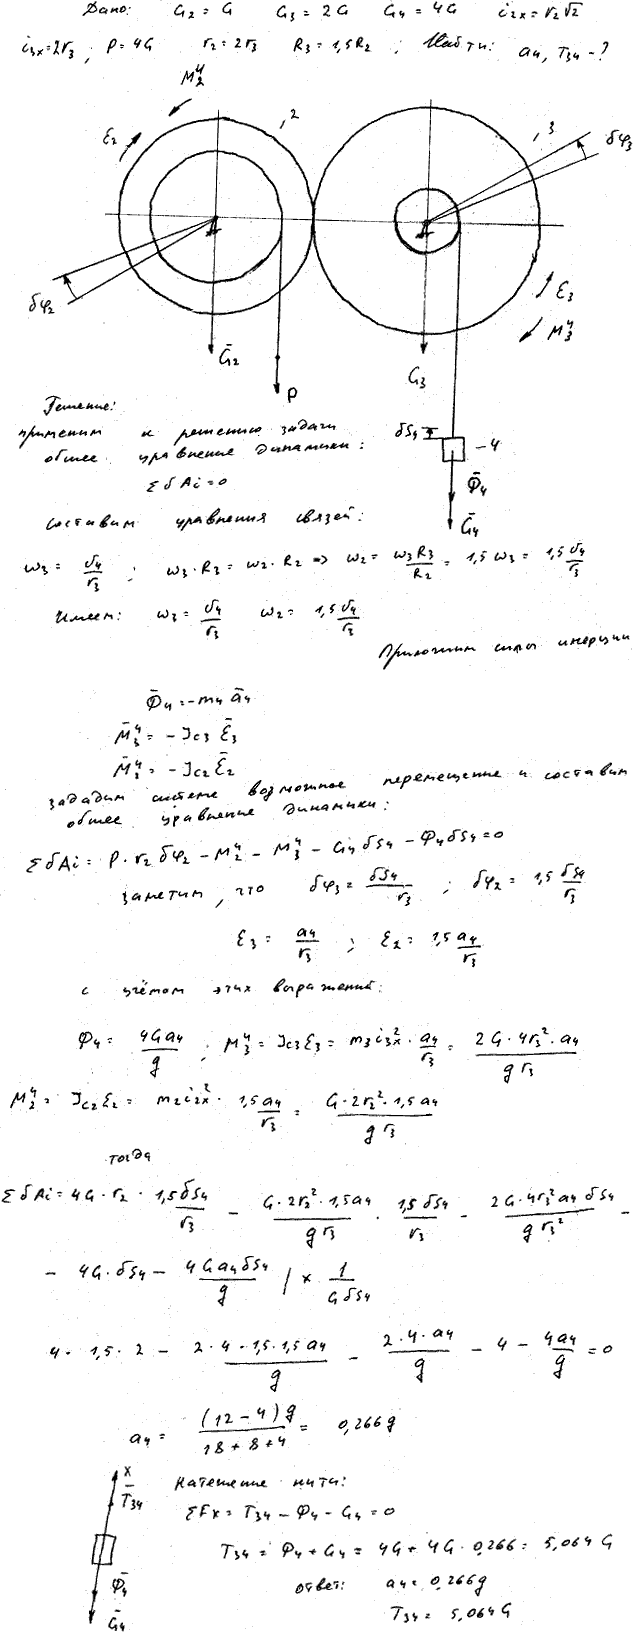 Дано: G₂ = G G₃ = 2G G₄ = 4G i₂ₓ = r₂√2
i₃ₓ = 2r₃ ; P = 4G r₂ = 2r₃ R₃ = 1,5R₂ ; Найти: a₄, T₃₄ - ?
M₂ᶣ
ε₂
, 2
, 3
δφ₃
δφ₂
ε₃
M₃ᶣ
Ḡ₂
P
G₃
Решение:
применим к решению задачи
общее уравнение динамики:
Σ δAi = 0
δS₄
- 4
Φ̄₄
Ḡ₄
составим уравнения связей:
ω₃ = v₄/r₃ ; ω₃·R₃ = ω₂·R₂ => ω₂ = ω₃R₃/R₂ = 1,5ω₃ = 1,5 v₄/r₃
Имеем: ω₃ = v₄/r₃ ω₂ = 1,5 v₄/r₃
Приложим силы инерции
Φ̄₄ = -m₄ā₄
M̄₃ᶣ = -Jc₃ ε̄₃
M̄₂ᶣ = -Jc₂ ε̄₂
зададим системе возможное перемещение и составим
общее уравнение динамики:
Σ δAi = P·r₂ δφ₂ - M₂ᶣ - M₃ᶣ - G₄δS₄ - Φ₄δS₄ = 0
заметим, что δφ₃ = δS₄/r₃ ; δφ₂ = 1,5 δS₄/r₃
ε₃ = a₄/r₃ ; ε₂ = 1,5 a₄/r₃
с учётом этих выражений:
Φ₄ = 4Ga₄/g ; M₃ᶣ = Jc₃ε₃ = m₃i₃ₓ² · a₄/r₃ = 2G·4r₃²·a₄/g r₃
M₂ᶣ = Jc₂ε₂ = m₂i₂ₓ² · 1,5a₄/r₃ = G·2r₂²·1,5a₄/g r₃
тогда
Σ δAi = 4G·r₂ · 1,5δS₄/r₃ - G·2r₂²·1,5a₄/g r₃ · 1,5δS₄/r₃ - 2G·4r₃²a₄δS₄/g r₃² -
- 4G·δS₄ - 4Ga₄δS₄/g / × 1/GδS₄
4·1,5·2 - 2·4·1,5·1,5a₄/g - 2·4·a₄/g - 4 - 4a₄/g = 0
a₄ = (12-4)g/18+8+4 = 0,266g
x
T̄₃₄
Φ̄₄
Ḡ₄
Натяжение нити:
ΣFx = T₃₄ - Φ₄ - G₄ = 0
T₃₄ = Φ₄ + G₄ = 4G + 4G·0,266 = 5,064G
ответ: a₄ = 0,266g
T₃₄ = 5,064G